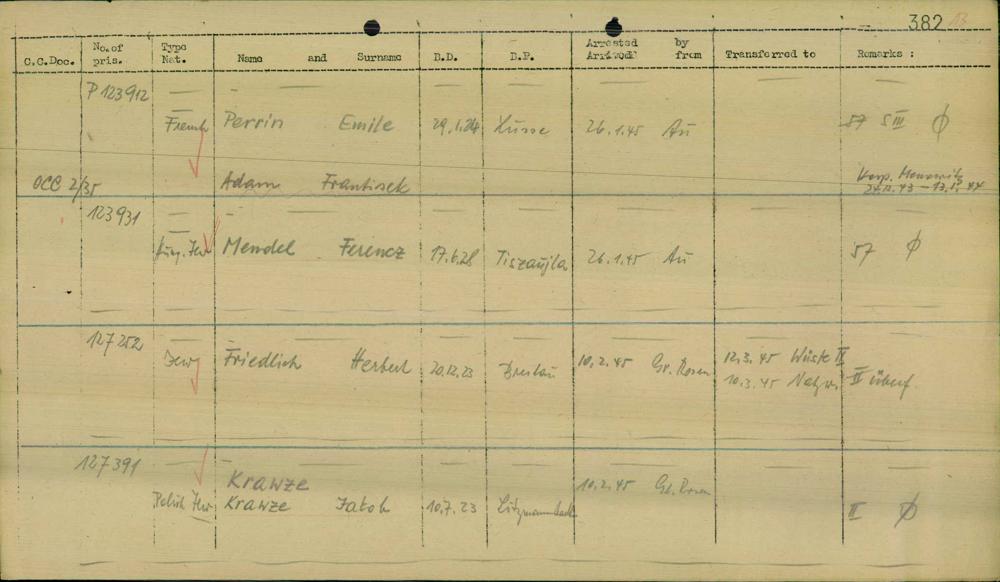 382 13
C.C.Doc. No. of pris. Type Nat. Name and Surname B.D. B.P. Arrested Arrived by from Transferred to Remarks :
P 123912
French Perrin Emile 29.1.24 26.1.45 Au 57 S III Ø
OCC 2/35 Adam Frantisek Monowitz
123931
Ung. Jew Mendel Ferencz 17.6.28 Tiszaujla 26.1.45 Au 57 Ø
127252
Jew Friedlich Herbert 20.12.23 Breslau 10.2.45 Gr. Rosen 12.3.45 Wüste II
10.3.45 Natzw. II überf.
127391
Krawze 10.2.45 Gr. Rosen
Polish Jew Krawze Jakob 10.7.23 Litzmannstadt II Ø